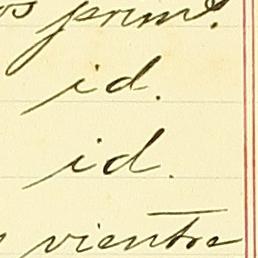 os prim.
id.
id.
vientre